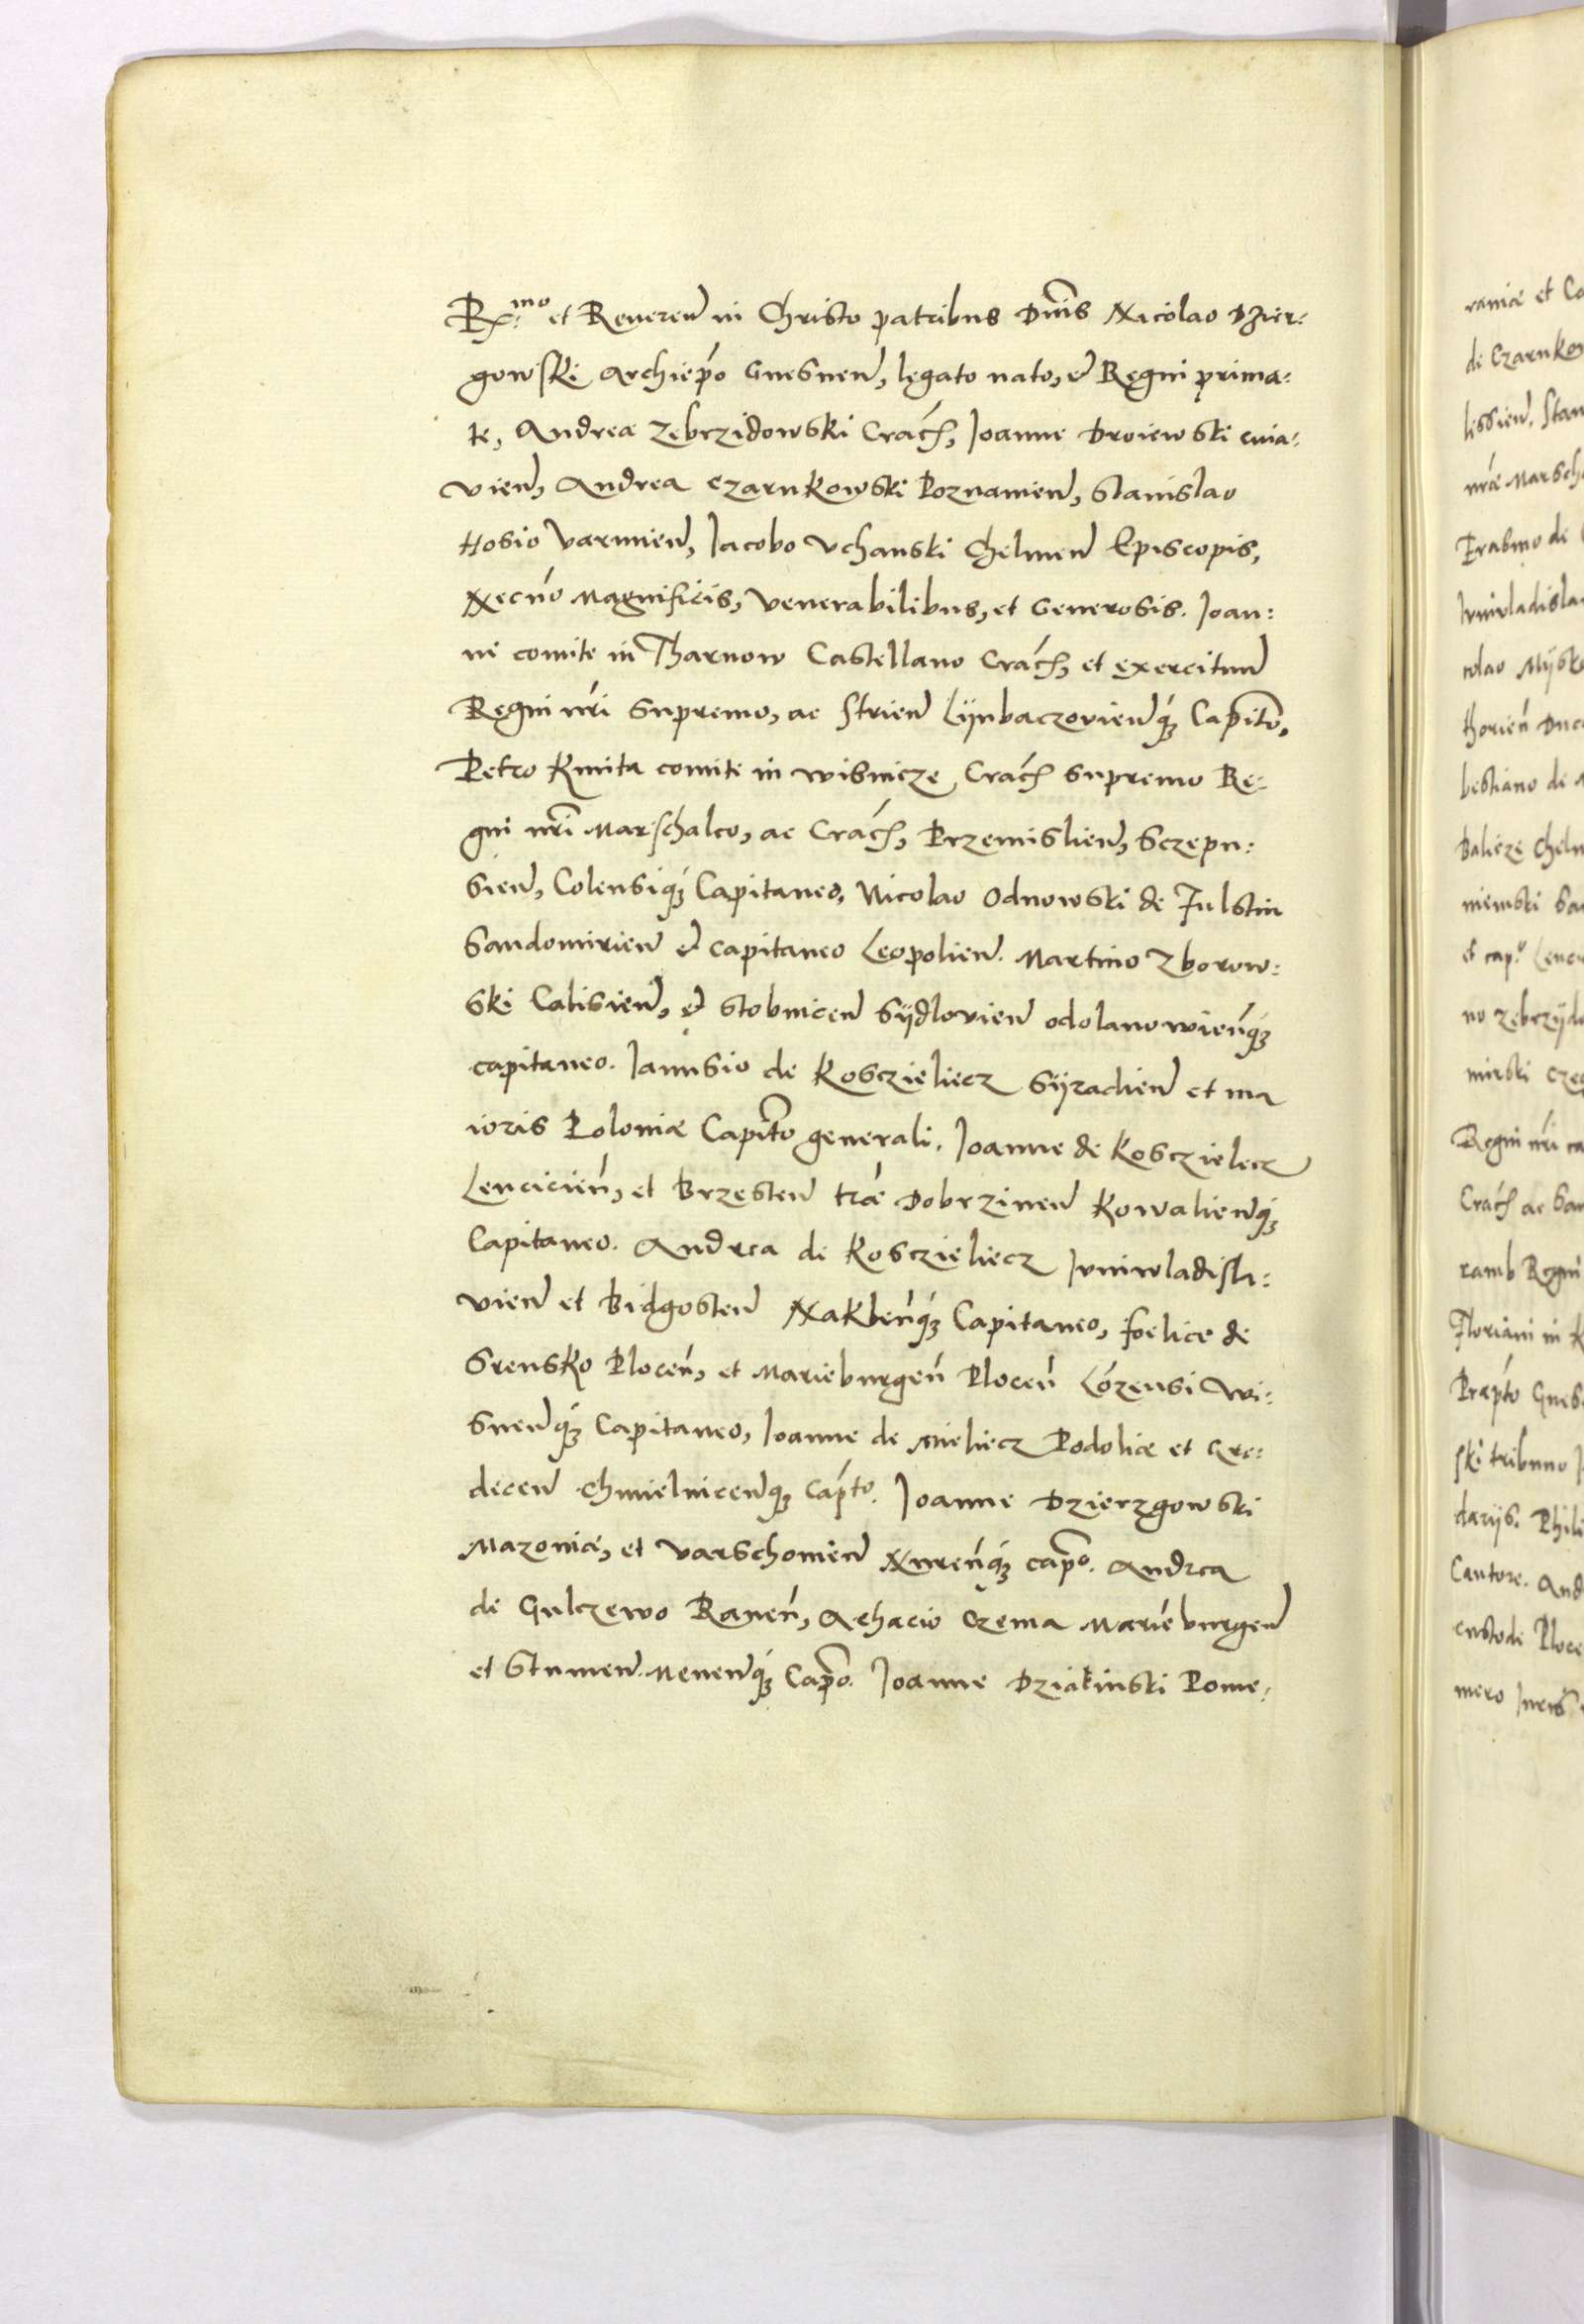 R.mo et Reueren in Christo patribus Dnis Nicolao Dzier:
gowski Archiepo Gnesnen, legato nato, et Regni prima:
te, Andrea Zebrzidowski Crac, Joanne Droiewski cuia:
vien, Andrea Czarnkowski Poznanien, Stanislao
Hosio Varmien, Iacobo Vchanski Chelmen Episcopis,
Necno Magnificis, Venerabilibus, et Generosis. Joan:
ne comite in Tharnow Castellano Crac, et exercituu
Regni nri Supremo, ac Strien Lijubaczovienq3 Capito,
Petro Kmita comite in Wisnicze Crac supremo Re:
gni nri Marschalco, ac Crac, Przemislien, Sczepu:
sien, Colensiq3 Capitaneo, Nicolao Odnowski de Fulstin
Sandomirien et capitaneo Leopolien. Martino Zborow:
ski Calisien, et Stobnicen Sijdlovien odolanowienq3
capitaneo. Ianusio de Kosczieliecz Sijradien et ma
ioris Poloniæ Capito generali. Joanne de Kosczielecz
Lencicien, et Brzesten træ Dobrzinen Kowalienq3
Capitaneo. Andrea de Kosczieliecz Iuniwladisla:
vien et Bidgosten Naklenq3 Capitaneo, foelice de
Srensko Plocen, et Marieburgen Plocen Lozensi Wi:
snenq3 Capitaneo, Joanne de Mieliecz Podoliæ et Gre:
decen Chmielnicenq3 Capto. Joanne Dzierzgowski
Mazoniæ, et Varschonien Nurenq3 capo. Andrea
de Gulczewo Ranen, Achacio Czema Marieburgen
et Stumen. Menenq3 Capo. Joanne Dzialinski Pome:
raniæ et Ca
de Czarnko
lissien. Stan
nræ Marsch
Erasmo de
Iuniwladisla
colao Mijsk
thorien Duc
bestiano de
Balicze Cheln
niemski Sa
et cap.o Lenc
no Zebrzijd
mirski Cze
Regni nri ca
Crac ac San
ramb Regni
Floriani in K
Præpto Gnes
ski tribuno
darijs. Phili
Cantore. And
custode Ploce
mero Juris